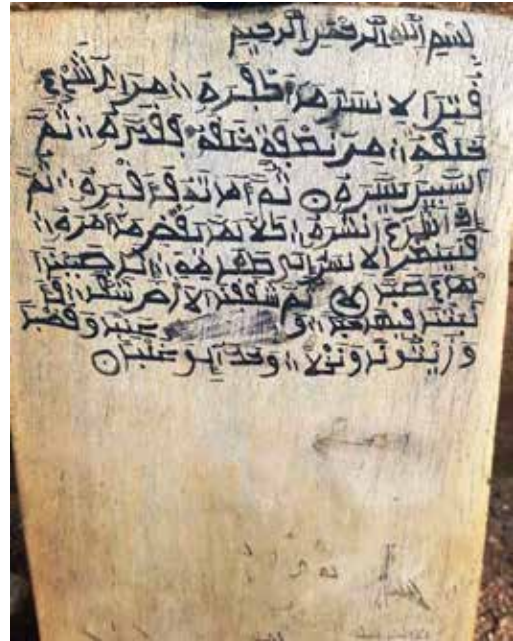 بسم الله الرحمن الرحيم
قتل الانسن ما أكفره من أي شيء
خلقه من نطفة خلقه فقدره ثم
السبيل يسره ثم أماته فأقبره ثم
إذا شاء أنشره كلا لما يقض ما أمره
فلينظر الانسن الى طعامه أنا صببنا
الماء صبا ثم شققنا الأرض شقا فأ
نبتنا فيها حبا و عنبا وقضبا
وزيتونا ونخلا وحدائق غلبا